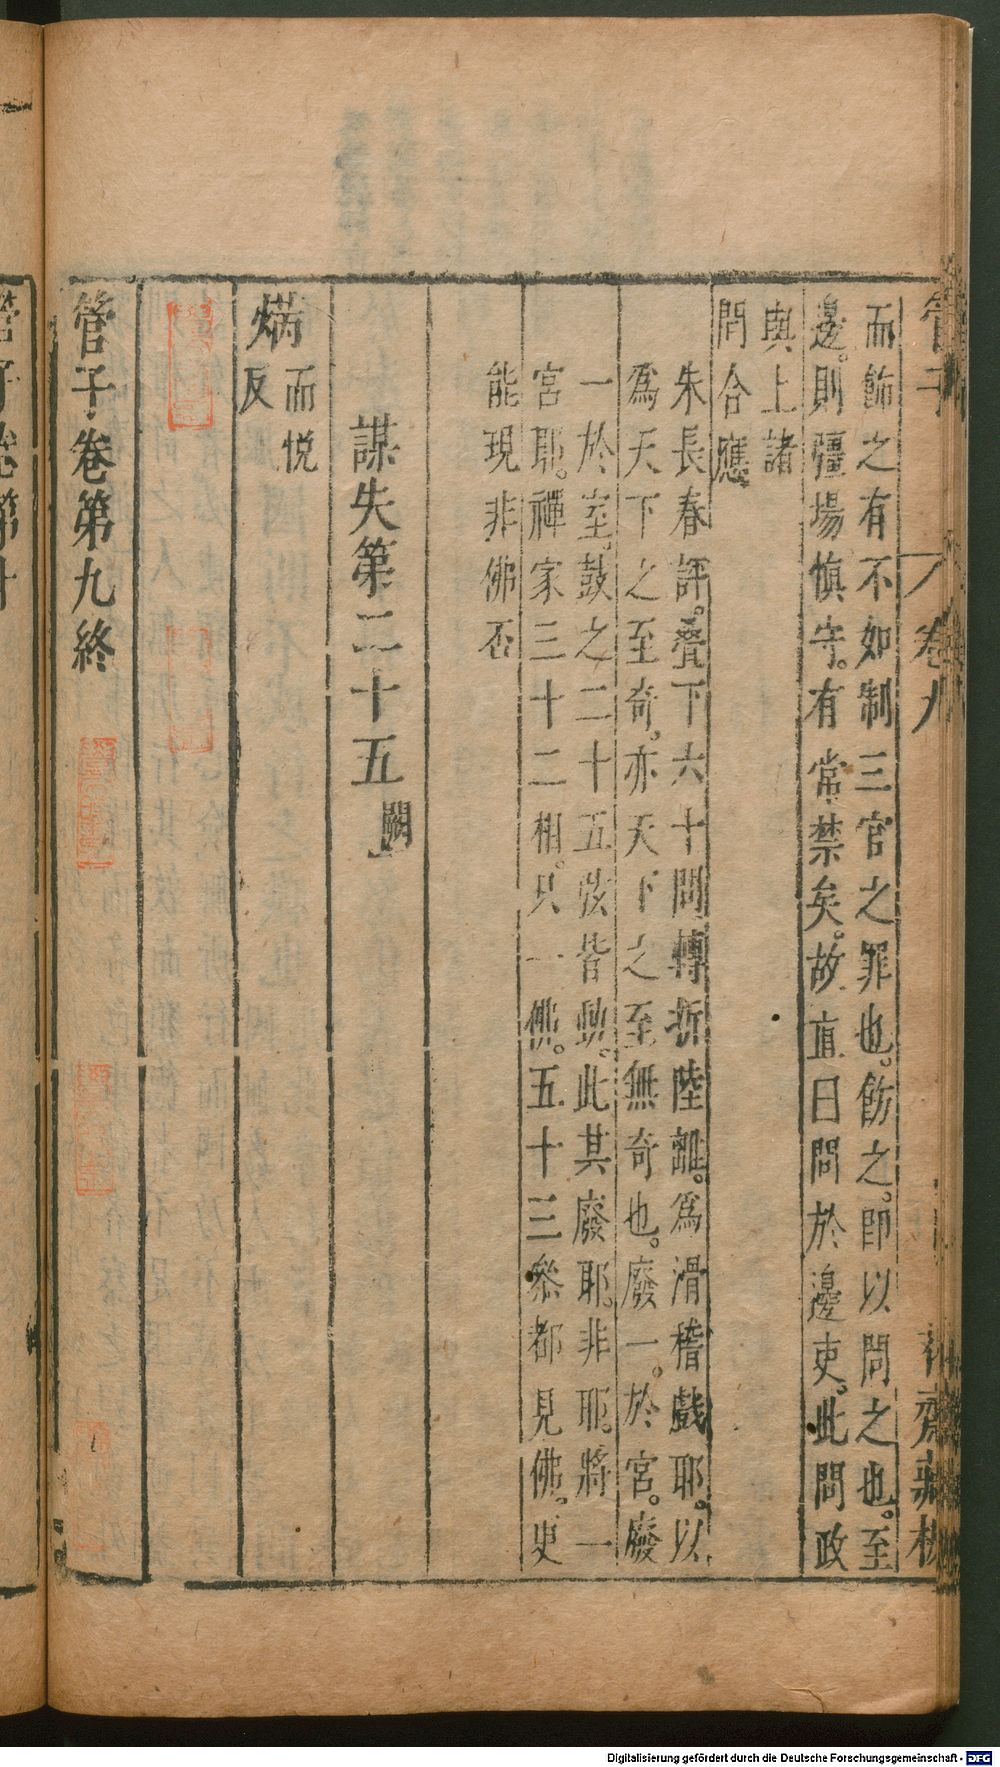 管子　卷九　花齋藏板
而飾之有不如制三官之罪也。飭之。即以問之也。至
邊。則疆場慎守。有常禁矣。故直曰問於邊吏。此問政
與上諸
問合應
朱長春評。疊下六十問轉折陸離。為滑稽戲耶。以
為天下之至奇。亦天下之至無奇也。廢一。於宮。廢
一於室。鼓之二十五弦皆動。此其廢耶。非耶。將一
宮耶。禪家三十二相。只一佛。五十三參都見佛。更
能現非佛否
謀失第二十五 闕
焫 而悅
反
管子卷第九終
管子卷第十
Digitalisierung gefördert durch die Deutsche Forschungsgemeinschaft - DFG